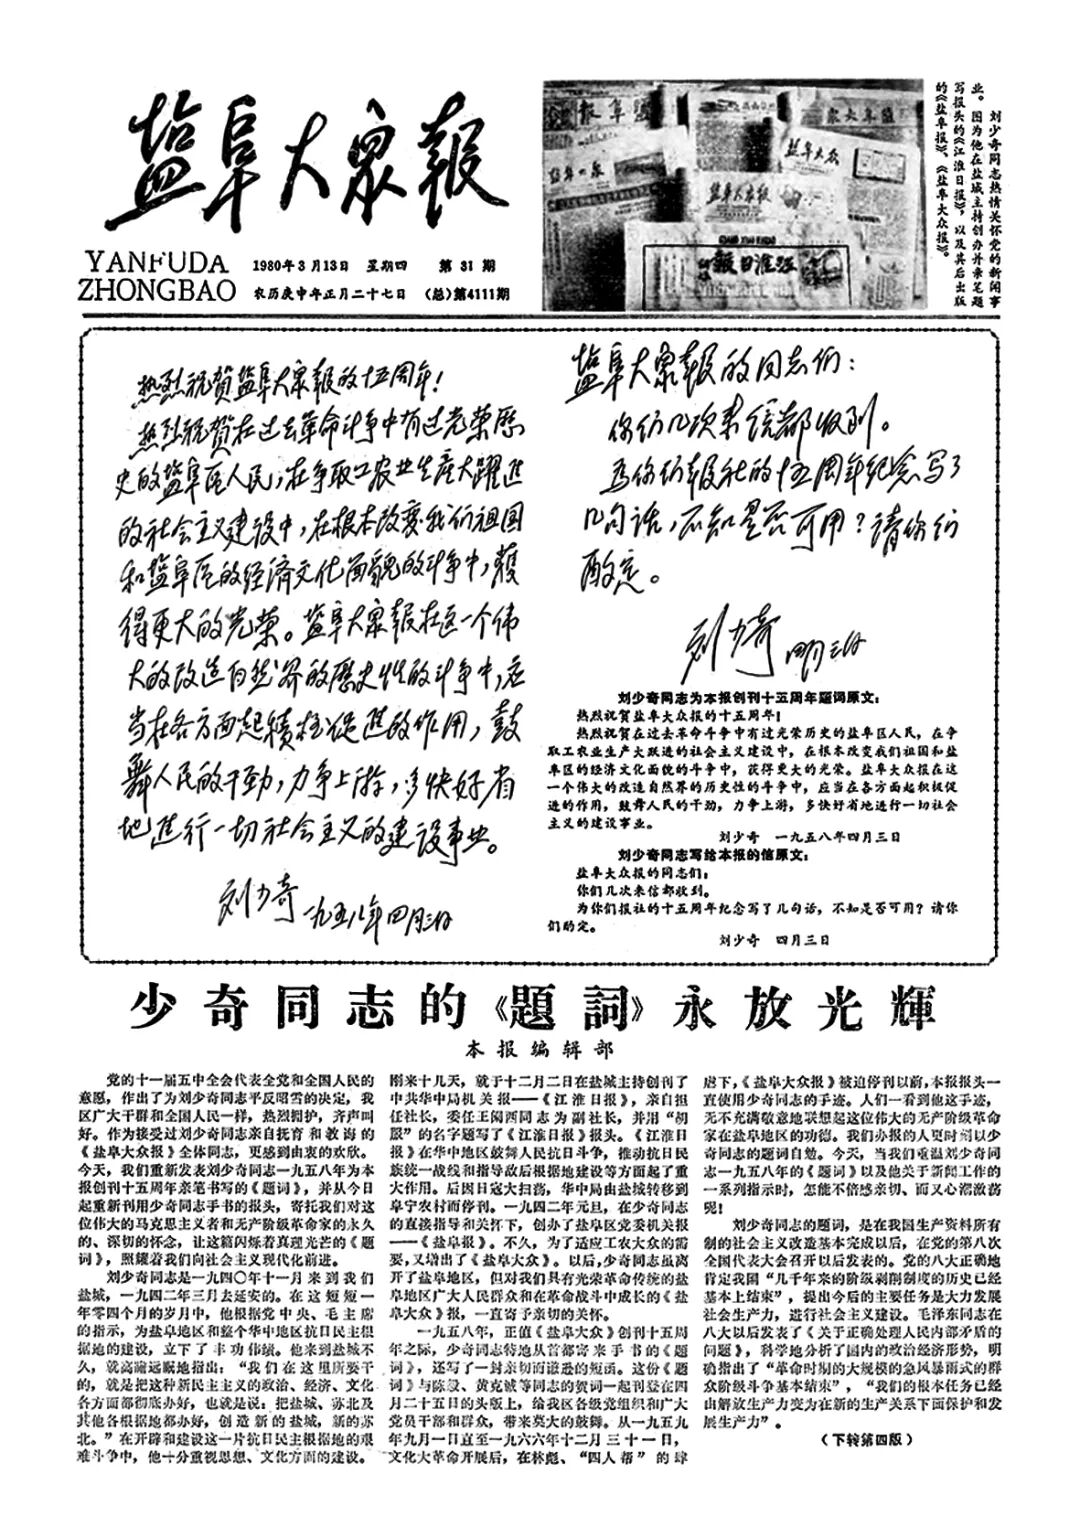 盐阜大众报
YANFUDA
ZHONGBAO
1980年3月13日 星期四 第31期
农历庚申年正月二十七日 (总)第4111期
刘少奇同志热情关怀党的新闻事
业。因为他在盐城主持创办并亲笔题
写报头的《江淮日报》，以及其后出版
的《盐阜报》、《盐阜大众报》。
热烈祝贺盐阜大众报的十五周年！
热烈祝贺在过去革命斗争中有过光荣历
史的盐阜区人民，在争取工农业生产大跃进
的社会主义建设中，在根本改变我们祖国
和盐阜区的经济文化面貌的斗争中，获
得更大的光荣。盐阜大众报在这一个伟
大的改造自然界的历史性的斗争中，应
当在各方面起积极促进的作用，鼓
舞人民的干劲，力争上游，多快好省
地进行一切社会主义的建设事业。
刘少奇 一九五八年四月三日
盐阜大众报的同志们：
你们几次来信都收到。
为你们报社的十五周年纪念写了
几句话，不知是否可用？请你们
酌定。
刘少奇 四月三日
刘少奇同志为本报创刊十五周年题词原文：
热烈祝贺盐阜大众报的十五周年！
热烈祝贺在过去革命斗争中有过光荣历史的盐阜区人民，在争
取工农业生产大跃进的社会主义建设中，在根本改变我们祖国和盐
阜区的经济文化面貌的斗争中，获得更大的光荣。盐阜大众报在这
一个伟大的改造自然界的历史性的斗争中，应当在各方面起积极促
进的作用，鼓舞人民的干劲，力争上游，多快好省地进行一切社会
主义的建设事业。
刘少奇 一九五八年四月三日
刘少奇同志写给本报的信原文：
盐阜大众报的同志们：
你们几次来信都收到。
为你们报社的十五周年纪念写了几句话，不知是否可用？请你
们酌定。
刘少奇 四月三日
少奇同志的《题詞》永放光輝
本报编辑部
党的十一届五中全会代表全党和全国人民的
意愿，作出了为刘少奇同志平反昭雪的决定，我
区广大干群和全国人民一样，热烈拥护，齐声叫
好。作为接受过刘少奇同志亲自抚育和教诲的
《盐阜大众报》全体同志，更感到由衷的欢欣。
今天，我们重新发表刘少奇同志一九五八年为本
报创刊十五周年亲笔书写的《题词》，并从今日
起重新刊用少奇同志手书的报头，寄托我们对这
位伟大的马克思主义者和无产阶级革命家的永久
的、深切的怀念，让这篇闪烁着真理光芒的《题
词》，照耀着我们向社会主义现代化前进。
刘少奇同志是一九四〇年十一月来到我们
盐城，一九四二年三月去延安的。在这短短一
年零四个月的岁月中，他根据党中央、毛主席
的指示，为盐阜地区和整个华中地区抗日民主根
据地的建设，立下了丰功伟绩。他来到盐城不
久，就高瞻远瞩地指出：“我们在这里所要干
的，就是把这种新民主主义的政治、经济、文化
各方面都彻底办好，也就是说：把盐城、苏北及
其他各根据地都办好，创造新的盐城，新的苏
北。”在开辟和建设这一片抗日民主根据地的艰
难斗争中，他十分重视思想、文化方面的建设。
刚来十几天，就于十二月二日在盐城主持创刊了
中共华中局机关报——《江淮日报》，亲自担
任社长，委任王阑西同志为副社长，并用“胡
服”的名字题写了《江淮日报》报头。《江淮日
报》在华中地区鼓舞人民抗日斗争，推动抗日民
族统一战线和指导敌后根据地建设等方面起了重
大作用。后因日寇大扫荡，华中局由盐城转移到
阜宁农村而停刊。一九四二年元旦，在少奇同志
的直接指导和关怀下，创办了盐阜区党委机关报
——《盐阜报》。不久，为了适应工农大众的需
要，又增出了《盐阜大众》。以后，少奇同志虽离
开了盐阜地区，但对我们具有光荣革命传统的盐
阜地区广大人民群众和在革命战斗中成长的《盐
阜大众》报，一直寄予亲切的关怀。
一九五八年，正值《盐阜大众》创刊十五周
年之际，少奇同志特地从首都寄来手书的《题
词》，还写了一封亲切而谦逊的短函。这份《题
词》与陈毅、黄克诚等同志的贺词一起刊登在四
月二十五日的头版上，给我区各级党组织和广大
党员干部和群众，带来莫大的鼓舞。从一九五九
年九月一日直至一九六六年十二月三十一日，
文化大革命开展后，在林彪、“四人帮”的肆
虐下，《盐阜大众报》被迫停刊以前，本报报头一
直使用少奇同志的手迹。人们一看到他这手迹，
无不充满敬意地联想起这位伟大的无产阶级革命
家在盐阜地区的功德。我们办报的人更时刻以少
奇同志的题词自勉。今天，当我们重温刘少奇同
志一九五八年的《题词》以及他关于新闻工作的
一系列指示时，怎能不倍感亲切、而又心潮激荡
呢！
刘少奇同志的题词，是在我国生产资料所有
制的社会主义改造基本完成以后，在党的第八次
全国代表大会召开以后发表的。党的八大正确地
肯定我国“几千年来的阶级剥削制度的历史已经
基本上结束”，提出今后的主要任务是大力发展
社会生产力，进行社会主义建设。毛泽东同志在
八大以后发表了《关于正确处理人民内部矛盾的
问题》，科学地分析了国内的政治经济形势，明
确指出了“革命时期的大规模的急风暴雨式的群
众阶级斗争基本结束”，“我们的根本任务已经
由解放生产力变为在新的生产关系下面保护和发
展生产力”。
（下转第四版）